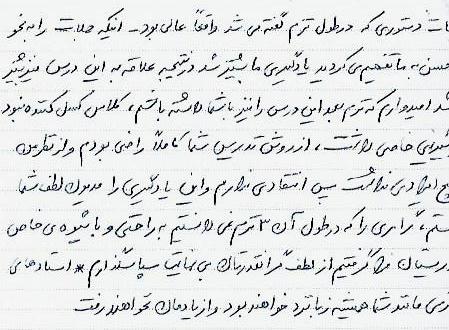 نکات دستوری که در طول ترم گفته می شد واقعاً عالی بود. اینکه مطالب را به نحو
احسن به ما تفهیم می کردید یادگیری ما بیشتر شد در نتیجه علاقه به این درس نیز بیشتر
شد امیدوارم که ترم بعد این درس را نیز با شما داشته باشم، کلاس کسل کننده نبود
شیرینی خاصی داشت، از روش تدریس شما کاملاً راضی بودم و از نظر من
هیچ ایرادی نداشت پس انتقادی ندارم و این یادگیری را مدیون لطف شما
هستم، گرامری را که در طول آن ۳ ترم نمی دانستم به راحتی و با شیوه ی خاص
فرا گرفتیم از لطف گرانقدرتان بی نهایت سپاسگزارم * استادهای
مانند شما همیشه زبانزد خواهند بود و از یادمان نخواهند رفت